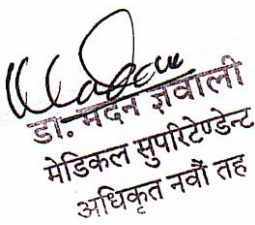 डा. मदन ज्ञवाली
मेडिकल सुपरिटेण्डेन्ट
अधिकृत नवौं तह